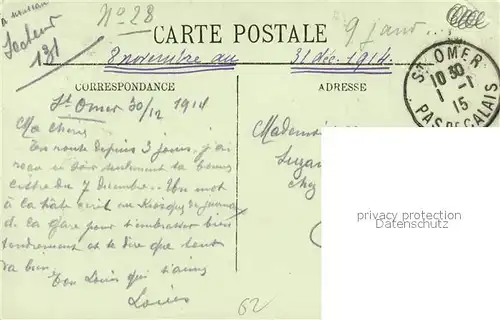 Nº 28
Secteur
131
CARTE POSTALE
9 janv...
8 novembre au 31 déc. 1914.
CORRESPONDANCE
ADRESSE
ST OMER
10 30
1 -1
15
PAS DE CALAIS
St Omer 30/12 1914
Ma chérie
En route depuis 3 jours, j'ai
reçu ce soir seulement ta bonne
lettre du 7 Décembre.. Un mot
à la hâte écrit au Kiosque de journaux
de la gare pour t'embrasser bien
tendrement et te dire que tout
va bien
Ton Louis qui t'aime
Louis
Mademoiselle
chez
62
privacy protection
Datenschutz